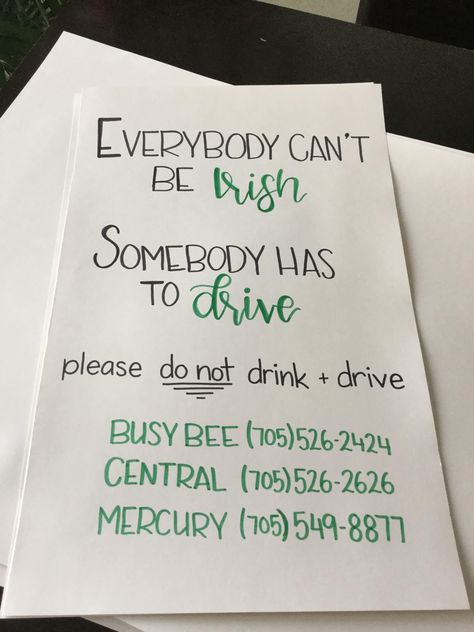 EVERYBODY CAN'T
BE Irish
SOMEBODY HAS
TO drive
please do not drink + drive
BUSY BEE (705)526-2424
CENTRAL (705)526-2626
MERCURY (705)549-8877